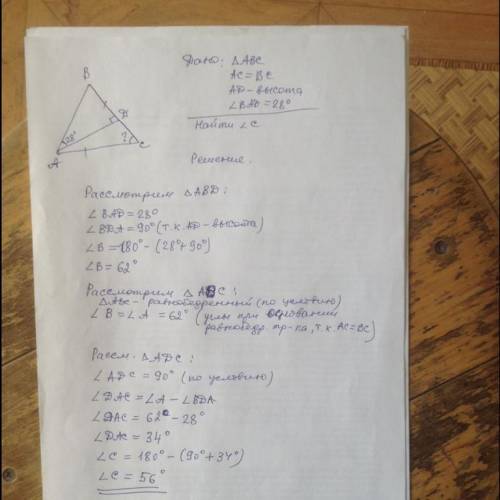 Дано: △ABC
AC = BC
AD - высота
∠BAD = 28°
Найти ∠C
B
D
28°
?
C
A
Решение.
Рассмотрим △ABD:
∠BAD = 28°
∠BDA = 90° (т.к. AD - высота)
∠B = 180° - (28° + 90°)
∠B = 62°
Рассмотрим △ABC:
△ABC - равнобедренный (по условию)
∠B = ∠A = 62° (углы при основании
равнобедр. тр-ка, т.к. AC = BC)
Рассм. △ADC:
∠ADC = 90° (по условию)
∠DAC = ∠A - ∠BDA
∠DAC = 62° - 28°
∠DAC = 34°
∠C = 180° - (90° + 34°)
∠C = 56°